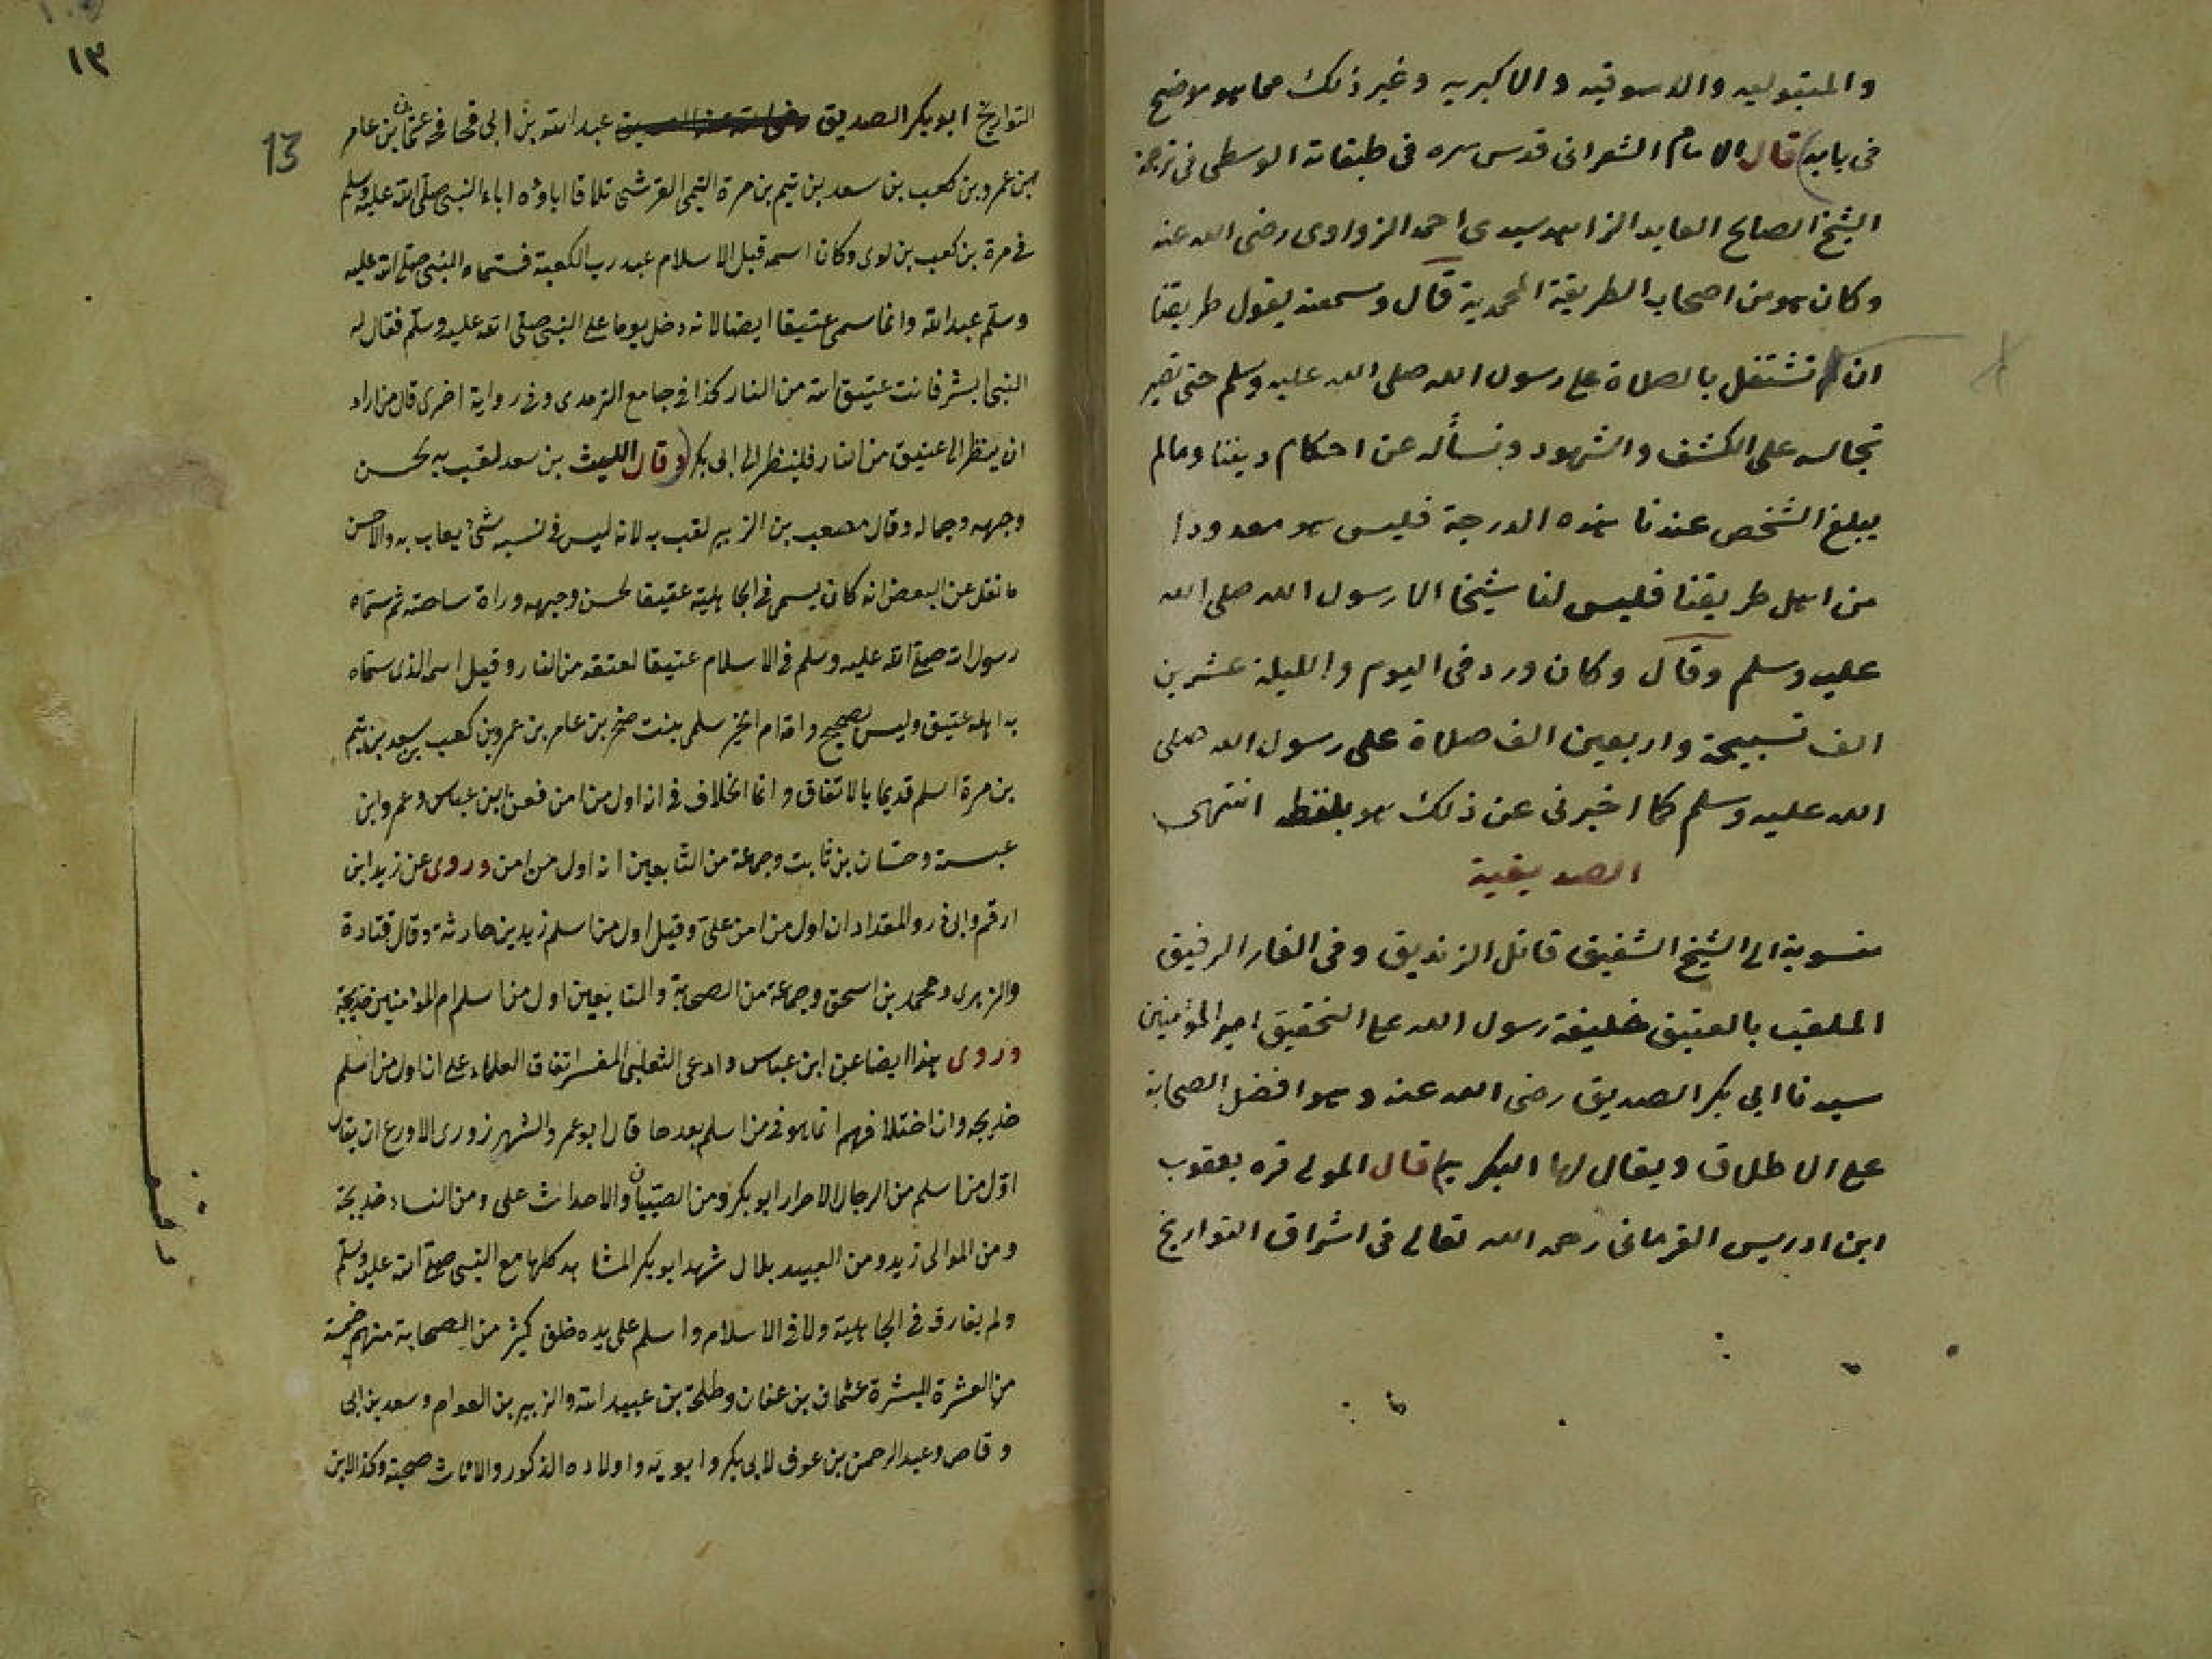 والمتبوليه والدسوقيه والاكبريه وغير ذلك مما هو لاضح
فى بابه قال الامام الشعرانى قدس سره فى طبقاته الوسطى فى ترجمة
الشيخ الصالح العابد الزاهد سيدى احمد الزواوى رضى الله عنه
وكان هو من اصحاب الطريقة المحمدية قال وسمعته يقول طريقتنا
ان تشتغل بالصلاة على رسول الله صلى الله عليه وسلم حتى تصير
تجالسه على الكشف والشهود ونسأله عن احكام ديننا ومالم
يبلغ الشخص عندنا هذه الدرجة فليس هو معدودا
من اهل طريقتنا فليس لنا شيخا الا رسول الله صلى الله
عليه وسلم وقال وكان ورد فى اليوم والليلة عشرين
الف تسبيحة واربعين الف صلاة على رسول الله صلى
الله عليه وسلم كما اخبرنى عن ذلك هو بلفظه انتهى
الصديقية
منسوبة الى الشيخ الشفيق قاتل الزنديق وفى الغار الرفيق
الملقب بالعتيق خليفة رسول الله على التحقيق امير المؤمنين
سيدنا ابى بكر الصديق رضى الله عنه وهو افضل الصحابة
على الاطلاق ويقال لها البكريه قال المولى قره يعقوب
ابن ادريس القرمانى رحمه الله تعالى فى اشراق التواريخ
١٣
13
التواريخ ابوبكر الصديق عبد الله بن ابى قحافه عثمان بن عامر
بن عمرو بن كعب بن سعد بن تيم بن مرة التيمى القرشى تلاقا اباؤه اباء النبى صلى الله عليه وسلم
فى مرة بن كعب بن لوى وكان اسمه قبل الاسلام عبد رب الكعبة فسماه النبى صلى الله عليه
وسلم عبد الله وانما سمى عتيقا ايضا لانه دخل يوما على النبى صلى الله عليه وسلم فقال له
النبى ابشر فانت عتيق الله من النار كذا فى جامع الترمدى وفى رواية اخرى قال من اراد
ان ينظر الى عتيق من النار فلينظر الى ابى بكر وقال الليث بن سعد لقب به لحسن
وجهه وجماله وقال مصعب بن الزبير لقب به لانه ليس فى نسبه شئ يعاب به والاحسن
ما نقل عن البعض انه كان يسمى فى الجاهلية عتيقا لحسن وجهه وراة ساحته ثم سماه
رسول الله صلى الله عليه وسلم فى الاسلام عتيقا لعتقه من النار وقيل اسمه الذى سماه
به اهله عتيق وليس بصحيح وامه ام الخير سلمى بنت صخر بن عامر بن عمرو بن كعب بن سعد بن تيم
بن مرة اسلم قديما بالاتفاق وانما الخلاف فى انه اول من امن فعن ابن عباس وعمرو ابن
عبسة وحسان بن ثابت وجماعة من التابعين انه اول من امن وروى عن زيد ابن
ارقم وابى ذر والمقداد ان اول من امن على وقيل اول من اسلم زيد بن حارثة وقال قتادة
والزهرى ومحمد بن اسحق وجماعة من الصحابة والتابعين اول من اسلم ام المؤمنين خديجة
وروى هذا ايضا عن ابن عباس وادعى الثعلبى المفسر اتفاق العلماء على ان اول من اسلم
خديجه وان اختلافهم انما هو فى من اسلم بعدها قال ابو عمر والشهرزورى الاورع ان يقال
اول من اسلم من الرجال الاحرار ابو بكر ومن الصبيان والاحداث على ومن النساء خديجة
ومن الموالى زيد ومن العبيد بلال شهد ابو بكر المشاهد كلها مع النبى صلى الله عليه وسلم
ولم يفارقه فى الجاهلية ولا فى الاسلام واسلم على يده خلق كثير من الصحابة منهم خمسة
من العشرة المبشرة عثمان بن عفان وطلحة بن عبيد الله والزبير بن العوام وسعد بن ابى
وقاص وعبد الرحمن بن عوف لابى بكر وابويه واولاده الذكور والاناث صحبة وكذا لابن